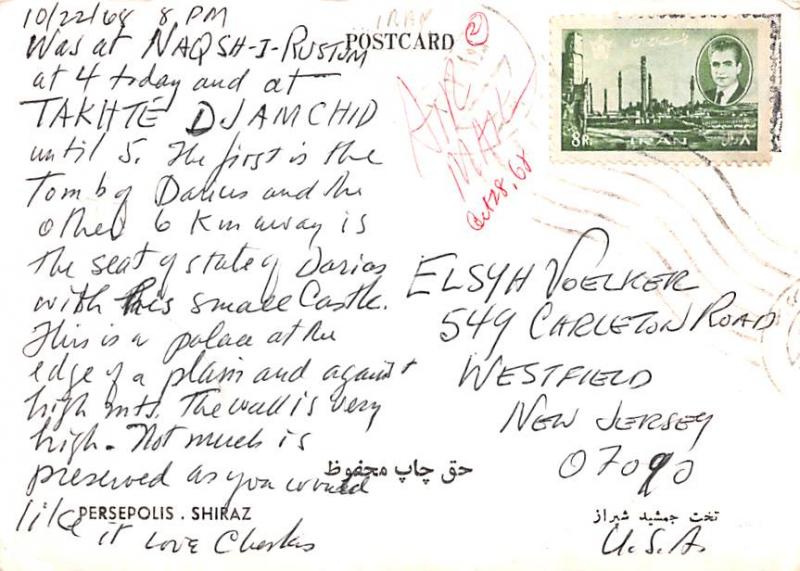 10/22/68 8 PM
Was at NAQSH-I-RUSTUM
at 4 today and at
TAKHTE DJAMCHID
until 5. The first is the
Tomb of Darius and the
other 6 Km away is
the seat of state of Darios
with his small Castle.
This is a palace at the
edge of a plain and against
high mts. The wall is very
high. Not much is
preserved as you would
like it Love Charles
PERSEPOLIS . SHIRAZ
IRAN
POSTCARD
2
AIR
MAIL
Oct 28, 68
پست ایران
8R.
IRAN
۸ ریال
ELSYH VOELKER
549 CARLETON ROAD
WESTFIELD
NEW JERSEY
07090
U.S.A.
حق چاپ محفوظ
تخت جمشید شیراز